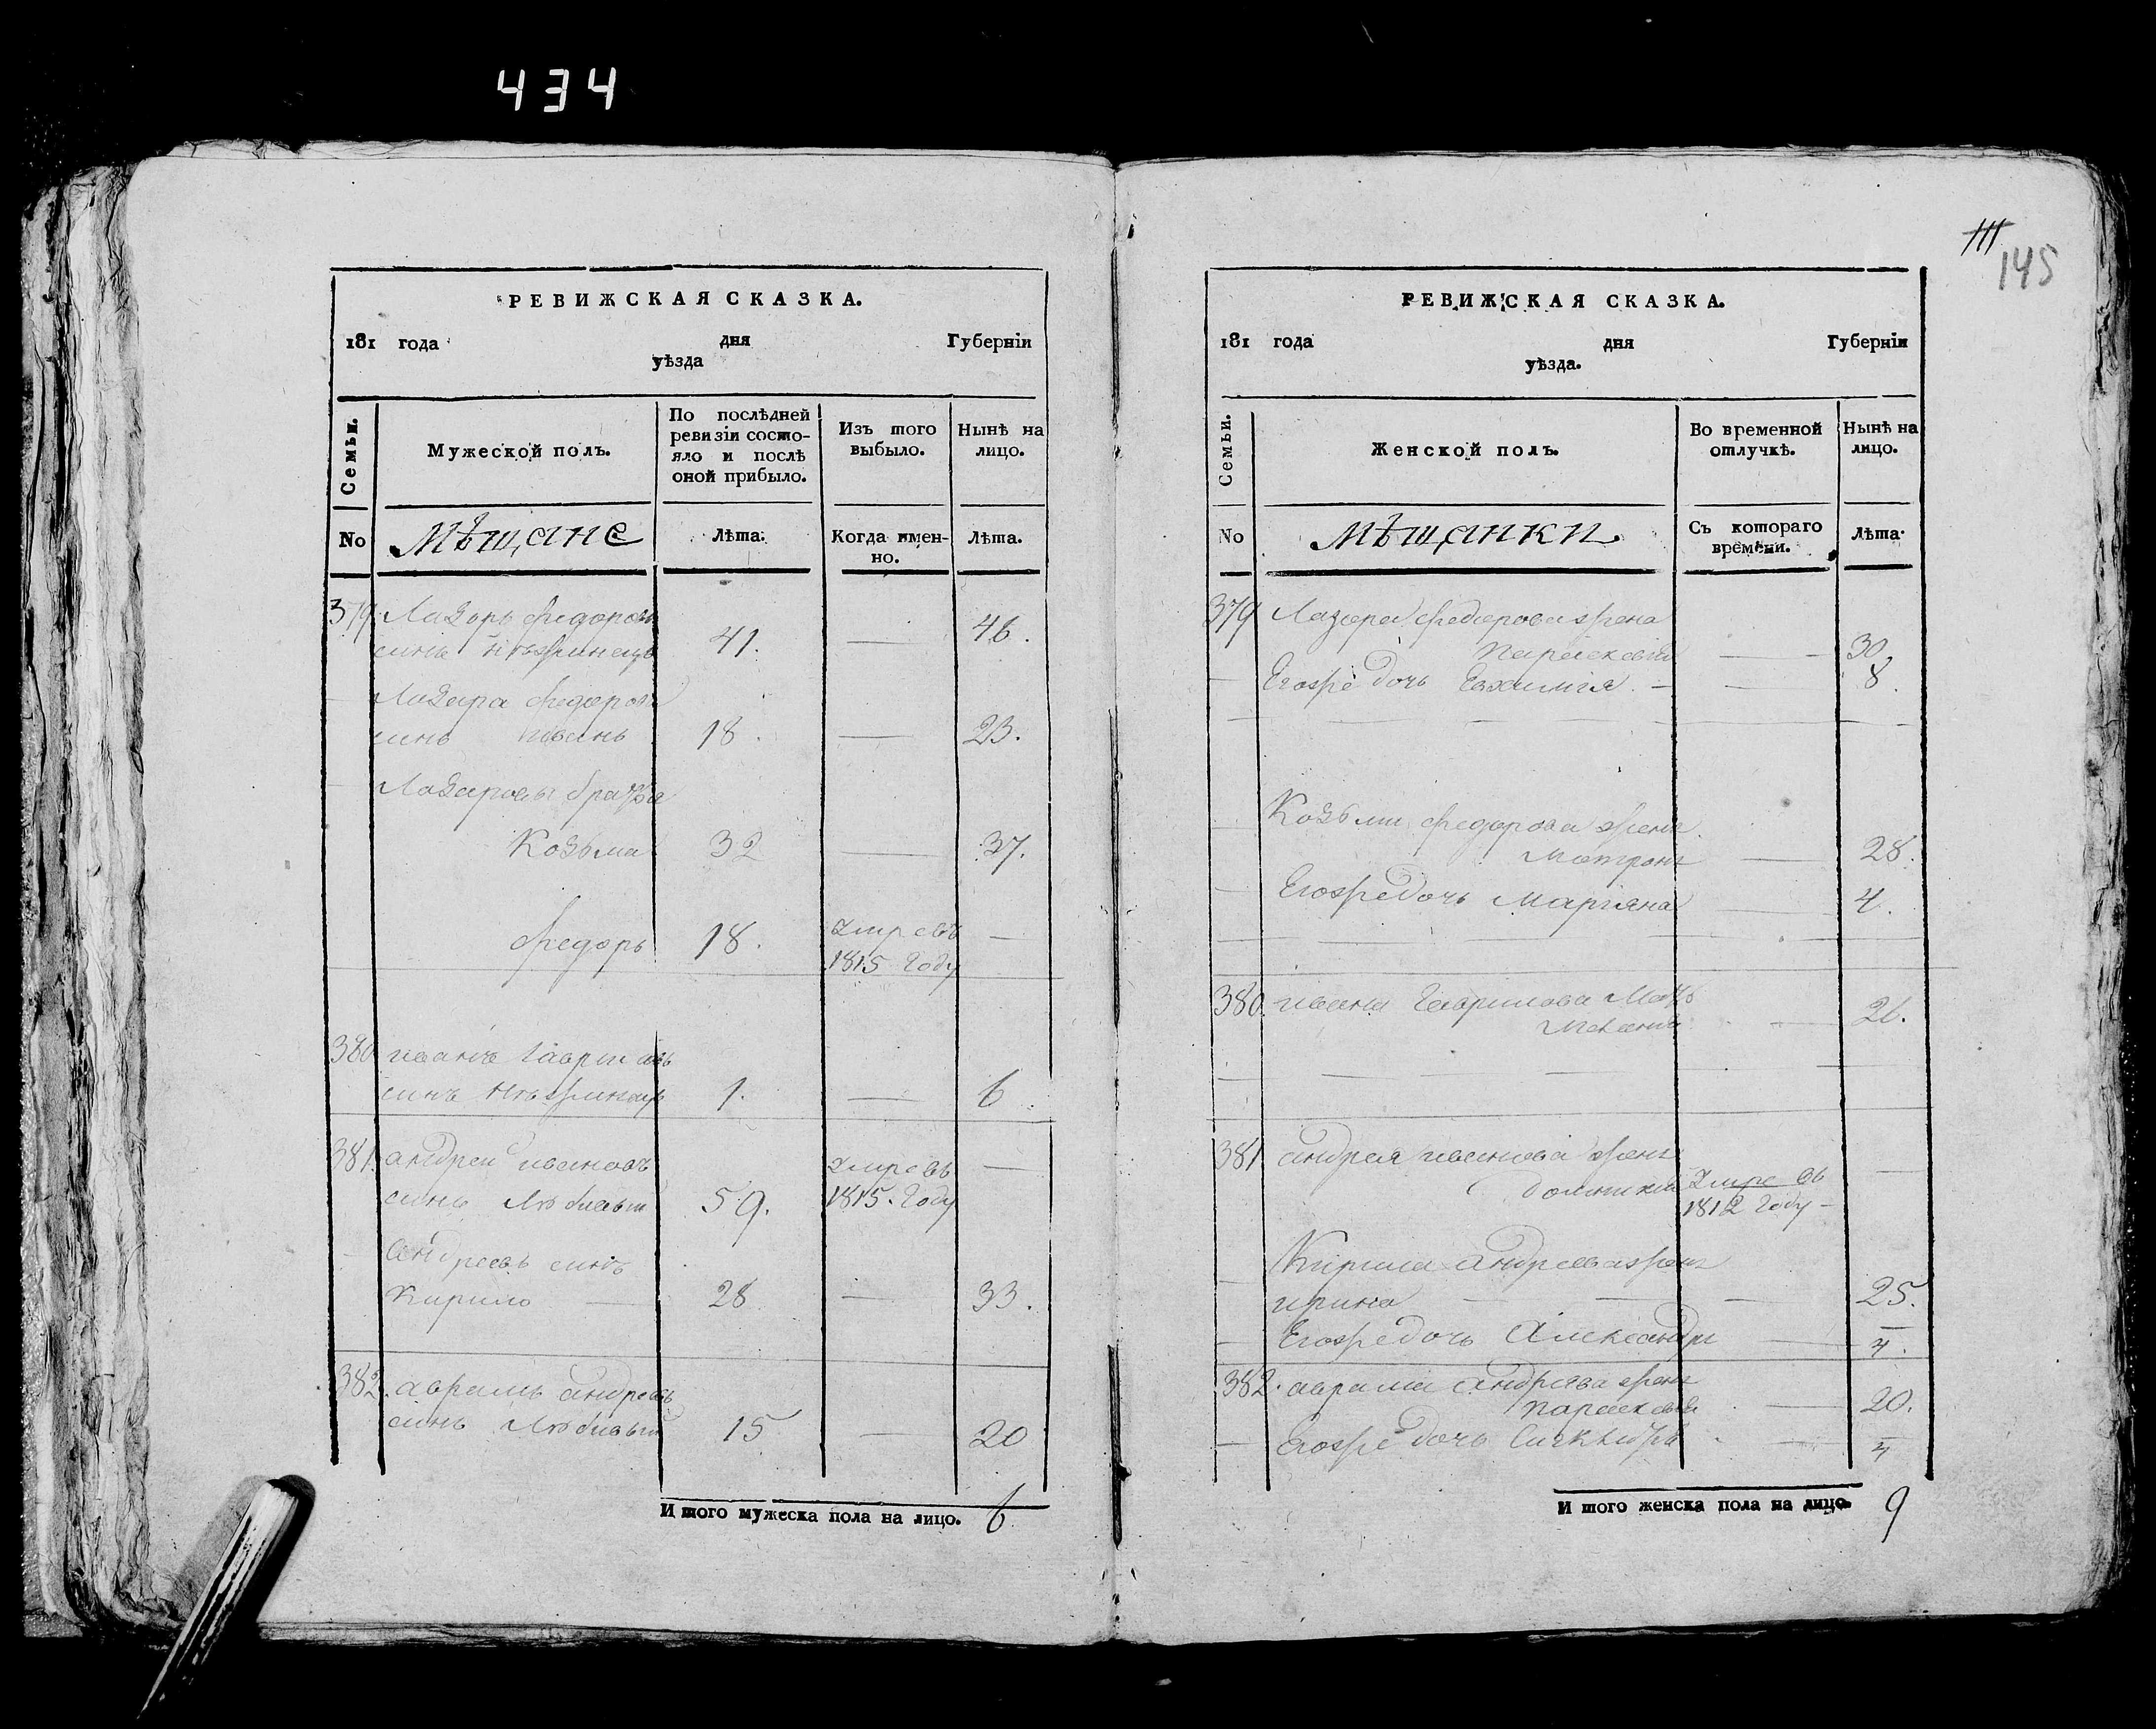 434
РЕВИЖСКАЯ СКАЗКА.
181 года дня Губерніи
уѣзда
Семьи.
Мужеской полъ.
По послѣдней ревизіи состояло и послѣ оной прибыло.
Изъ того выбыло.
Нынѣ на лицо.
No
Мѣщане
Лѣта:
Когда имен-но.
Лѣта.
379 Лазоръ Федоровъ
синъ Нѣжинецъ 41. — 46.
Лазара Федорова
синъ Иванъ 18. — 23.
Лазаровы братья
Козьма 32 — 37.
Федоръ 18. Умре въ —
1815 Году
380 иванъ Гавриловъ
синъ Нѣжинецъ 1. — 6
381. андрей ивановъ Умре въ —
синъ 59. 1815. Году
андреевъ синъ
Кирило — 28 — 33.
382. аврамъ андреевъ
синъ 15 — 20
И того мужеска пола на лицо. 6
111
145
РЕВИЖСКАЯ СКАЗКА.
181 года дня Губерніи
уѣзда.
Семьи.
Женской полъ.
Во временной отлучкѣ.
Нынѣ на лицо.
No
Мѣщанки.
Съ котораго времени.
Лѣта:
379 Лазора Федорова жена
Параскевия — 30.
Егожъ дочь Евхимия. — — 8.
Козьми Федорова жена
Матрона — 28.
Егожъ дочь Маріяна — 4.
380. ивана Гаврилова Мать
— 26.
381 андрея иванова жена
Умре въ —
1812 Году —
Кирила андреева жена
ирина — — — 25.
Егожъ дочь Александра — 4.
382. аврама андреева жена
Параскевия — 20.
Егожъ дочь — 4
И того женска пола на лицо. 9